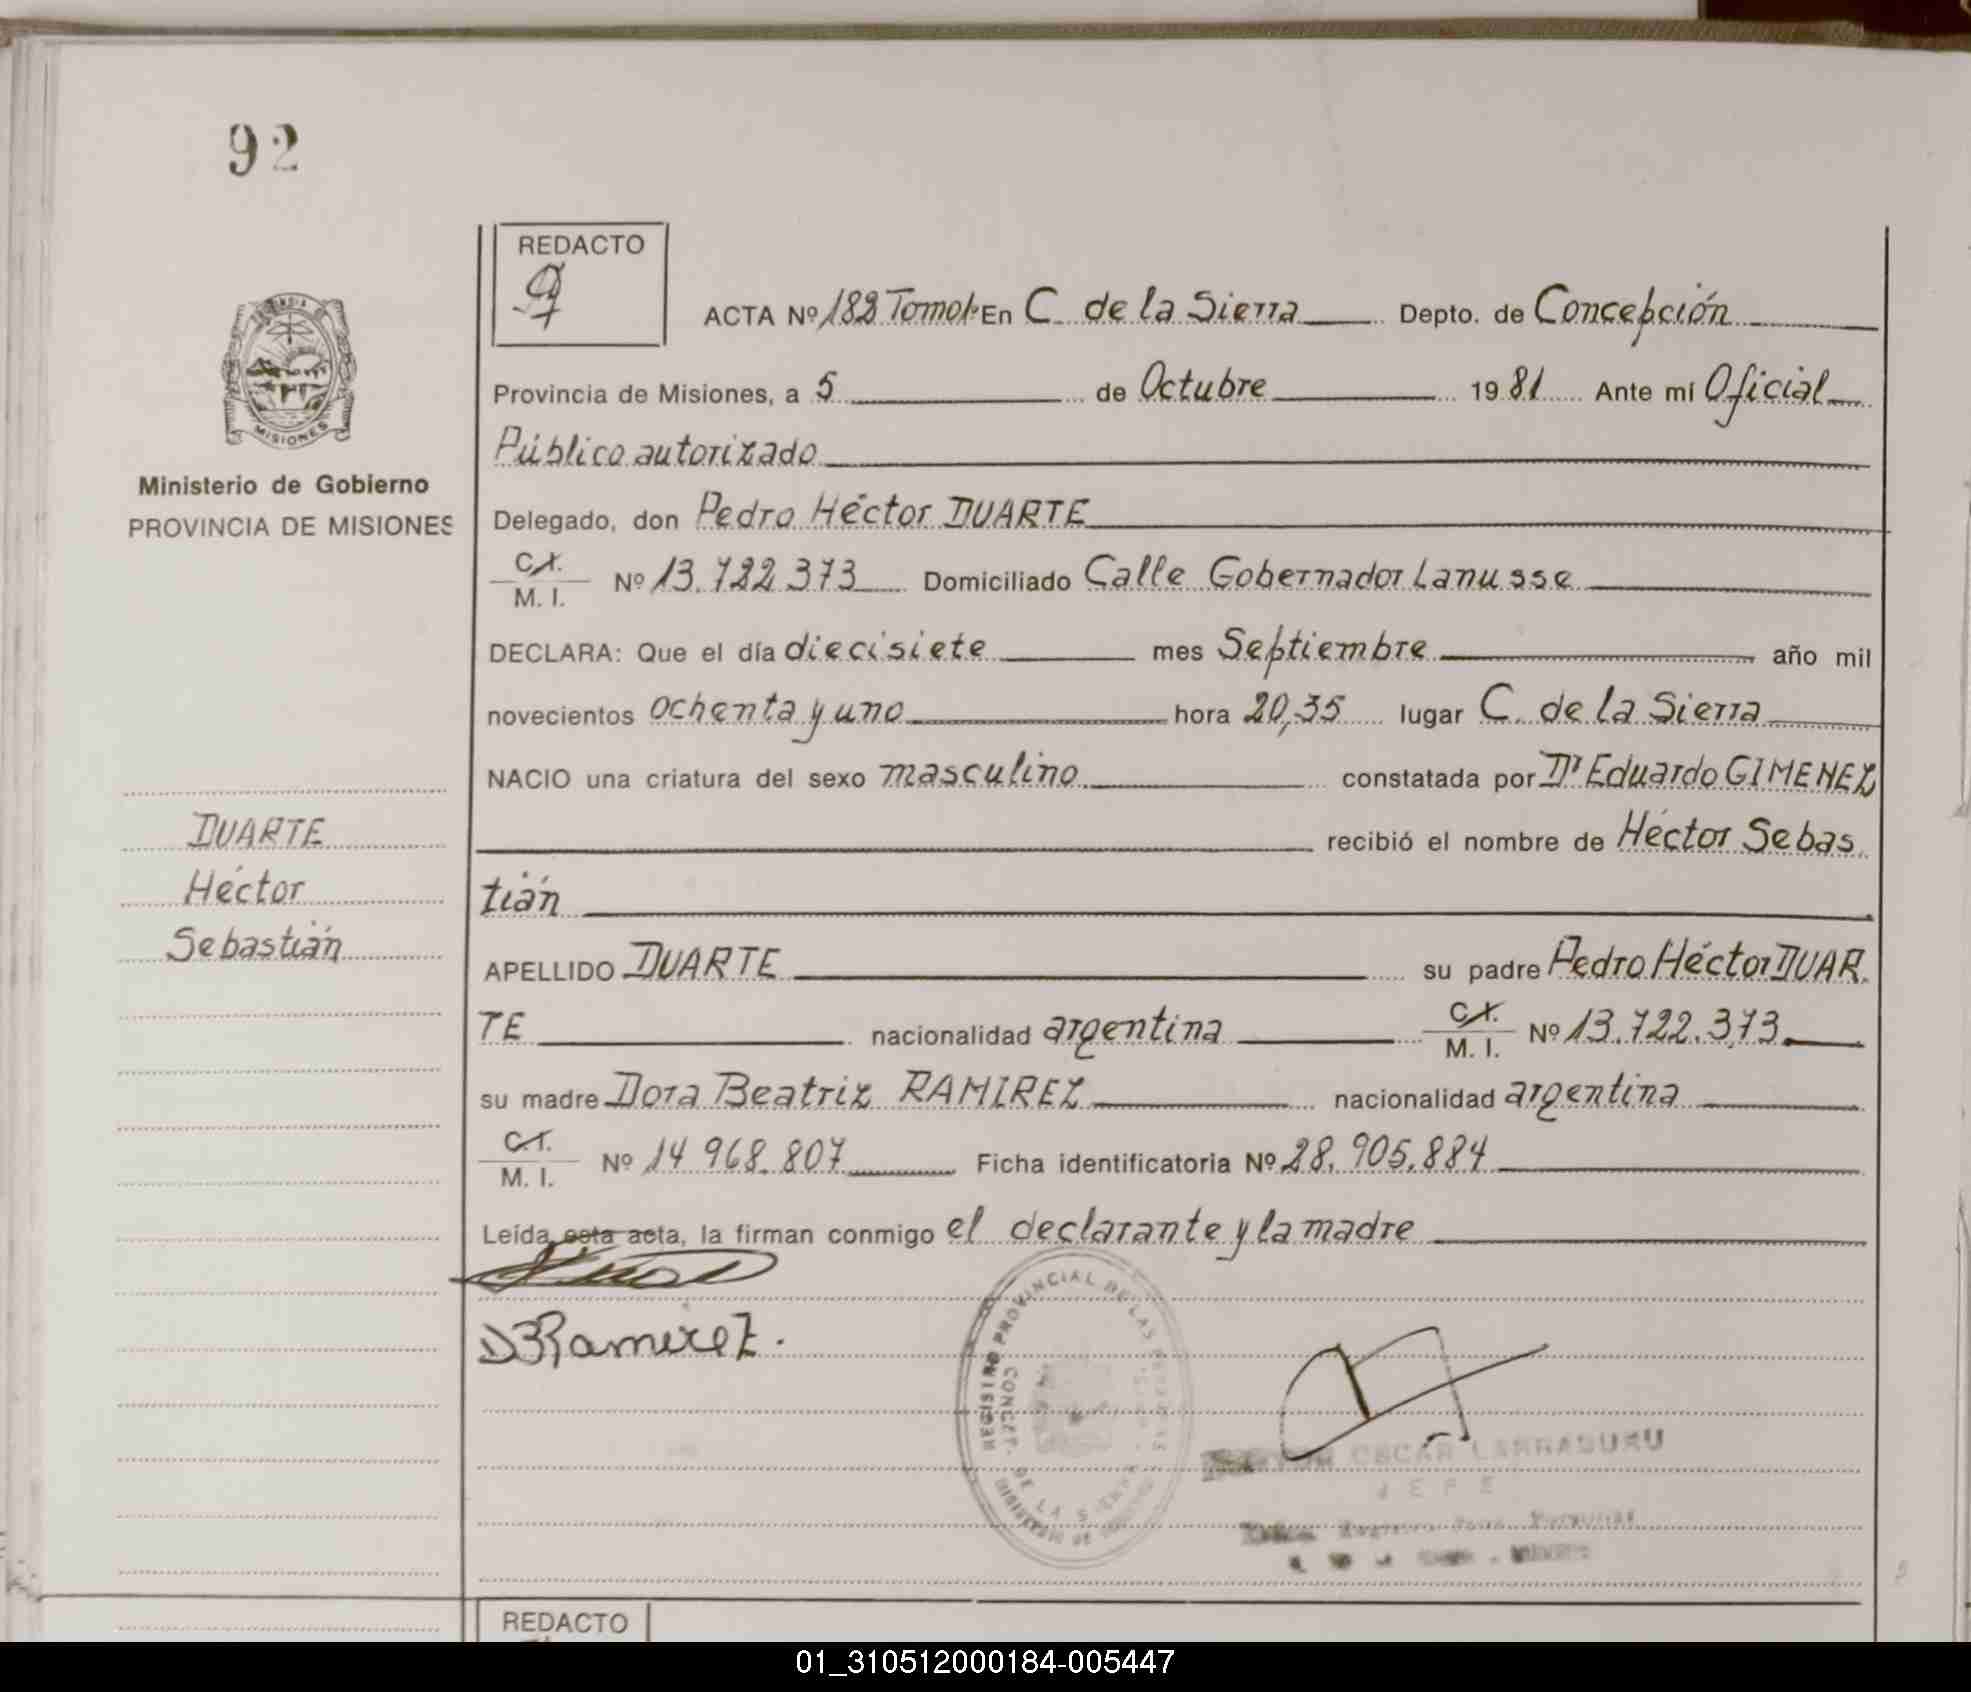 92
REDACTO
ACTA Nº 182 Tomo I En C. de la Sierra Depto. de Concepción
Provincia de Misiones, a 5 de Octubre 19 81 Ante mí Oficial
Público autorizado
MISIONES
Ministerio de Gobierno
PROVINCIA DE MISIONES
Delegado, don Pedro Héctor DUARTE
C.I.
M. I. Nº 13.722.373 Domiciliado Calle Gobernador Lanusse
DECLARA: Que el día diecisiete mes Septiembre año mil
novecientos ochenta y uno hora 20,35 lugar C. de la Sierra
NACIO una criatura del sexo masculino constatada por Dr Eduardo GIMENEZ
recibió el nombre de Héctor Sebas
tián
DUARTE
Héctor
Sebastián
APELLIDO DUARTE su padre Pedro Héctor DUAR
TE nacionalidad argentina C.I. M. I. Nº 13.722.373
su madre Dora Beatriz RAMIREZ nacionalidad argentina
C.I.
M. I. Nº 14.968.807 Ficha identificatoria Nº 28.905.884
Leída esta acta, la firman conmigo el declarante y la madre
DBRamirez.
REGISTRO PROVINCIAL DE LAS PERSONAS
CONCEP. DE LA SIERRA
OSCAR LARRABURU
JEFE
REDACTO
01_310512000184-005447